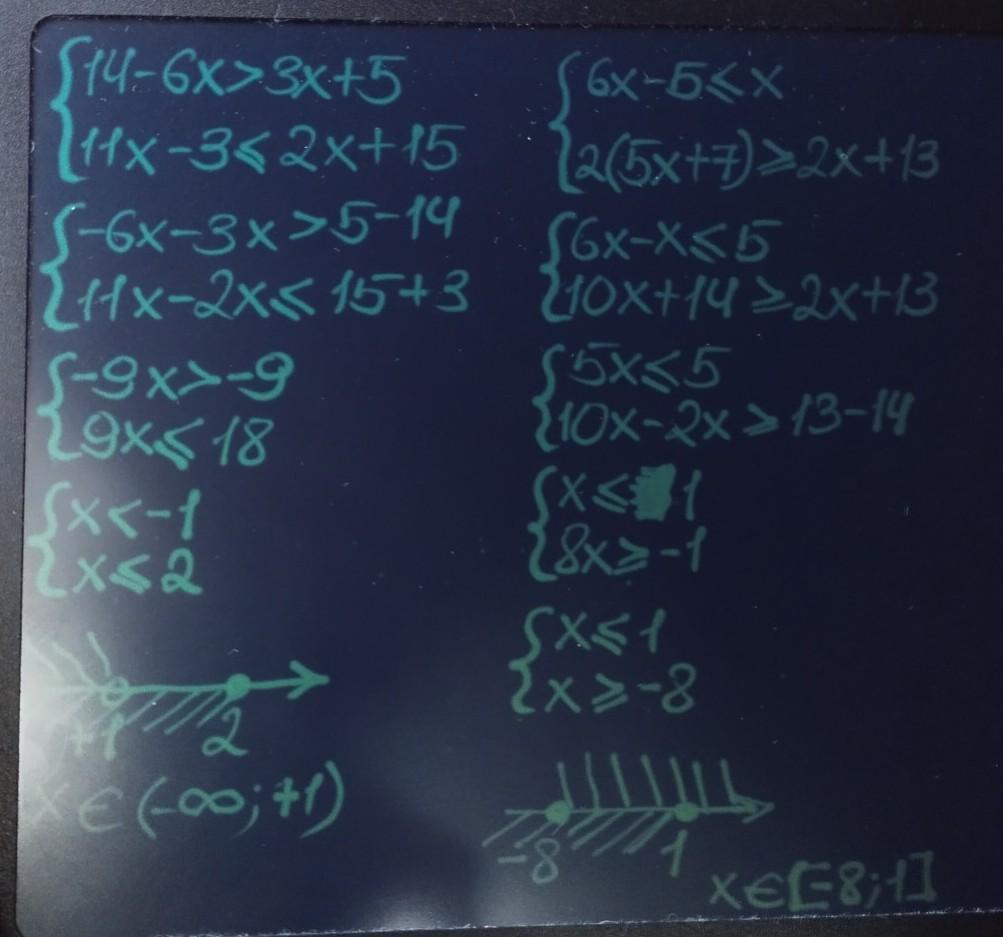 14-6x>3x+5
11x-3≤2x+15
-6x-3x>5-14
11x-2x≤15+3
-9x>-9
9x≤18
x<-1
x≤2
+1 2
x∈(-∞;+1)
6x-5≤x
2(5x+7)≥2x+13
6x-x≤5
10x+14≥2x+13
5x≤5
10x-2x≥13-14
x≤1
8x≥-1
x≤1
x≥-8
-8 1
x∈[-8;1]